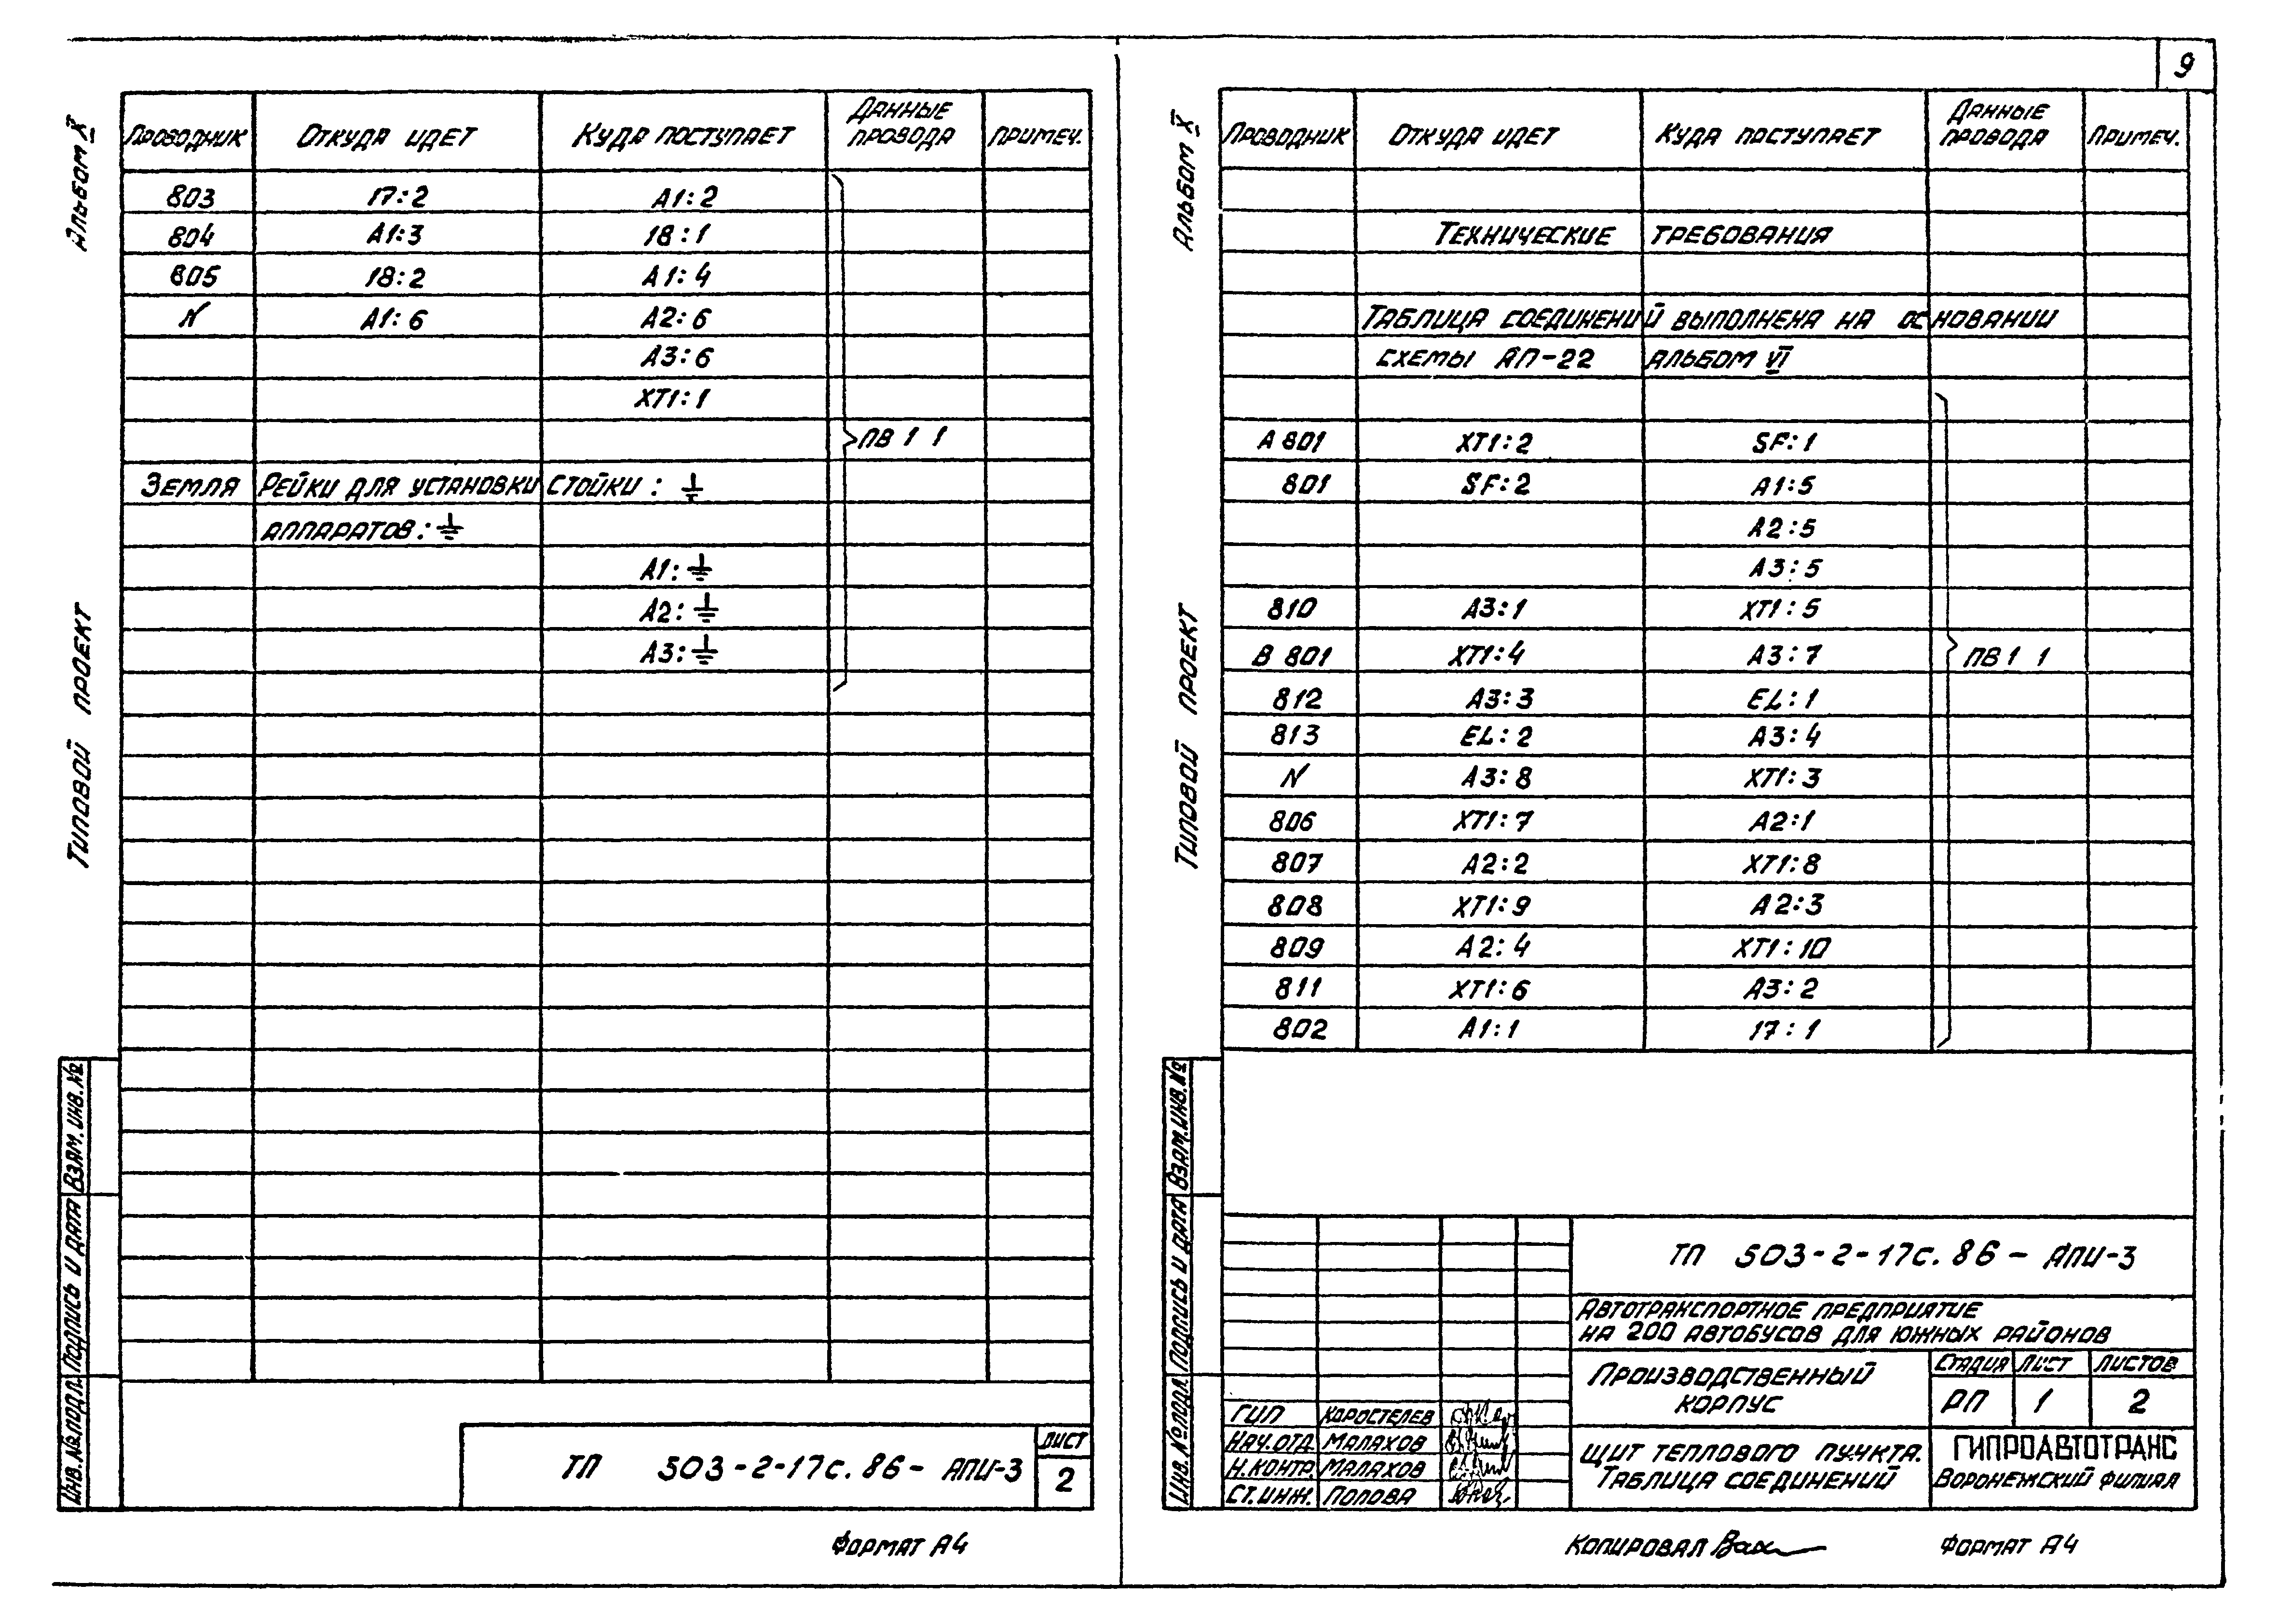 9
Альбом X
Типовой проект
Проводник | Откуда идет | Куда поступает | Данные провода | Примеч.
803 | 17:2 | А1:2
804 | А1:3 | 18:1
805 | 18:2 | А1:4
N | А1:6 | А2:6
А3:6
ХТ1:1
ПВ 1 1
Земля | Рейки для установки | стойки: ⏚
аппаратов: ⏚
А1: ⏚
А2: ⏚
А3: ⏚
Взам. инв. №
Подпись и дата
Инв. № подл.
ТП 503-2-17с.86- АПИ-3
Лист
2
Формат А4
Альбом X
Типовой проект
Проводник | Откуда идет | Куда поступает | Данные провода | Примеч.
Технические требования
Таблица соединений выполнена на основании
схемы АП-22 альбом VI
А 801 | ХТ1:2 | SF:1
801 | SF:2 | А1:5
А2:5
А3:5
810 | А3:1 | ХТ1:5
В 801 | ХТ1:4 | А3:7 | ПВ1 1
812 | А3:3 | EL:1
813 | EL:2 | А3:4
N | А3:8 | ХТ1:3
806 | ХТ1:7 | А2:1
807 | А2:2 | ХТ1:8
808 | ХТ1:9 | А2:3
809 | А2:4 | ХТ1:10
811 | ХТ1:6 | А3:2
802 | А1:1 | 17:1
Взам. инв. №
Подпись и дата
Инв. № подл.
ТП 503-2-17с.86- АПИ-3
Автотранспортное предприятие
на 200 автобусов для южных районов
Производственный
корпус
Стадия | Лист | Листов
РП | 1 | 2
ГИП | Коростелев
Нач. отд. | Малахов
Н. контр. | Малахов
Ст. инж. | Попова
Щит теплового пункта.
Таблица соединений
ГИПРОАВТОТРАНС
Воронежский филиал
Копировал
Формат А4